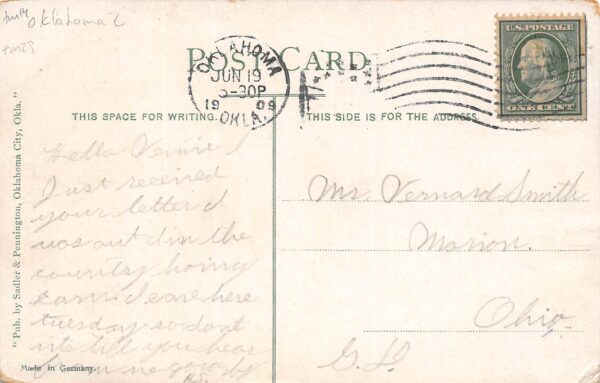 tm14 Oklahoma 2
tm25
POST CARD
OKLAHOMA
JUN 19
5-30P
1909
OKLA.
U.S. POSTAGE
ONE CENT
THIS SPACE FOR WRITING.
THIS SIDE IS FOR THE ADDRESS.
"Pub. by Sadler & Pennington, Oklahoma City, Okla."
Hello Vernie
I Just received
your letter I
was out in the
country hoing
corn. I leave here
tuesday so dont
till you hear
from me good by
Mr. Vernard Smith
Marion.
Ohio.
Made in Germany.